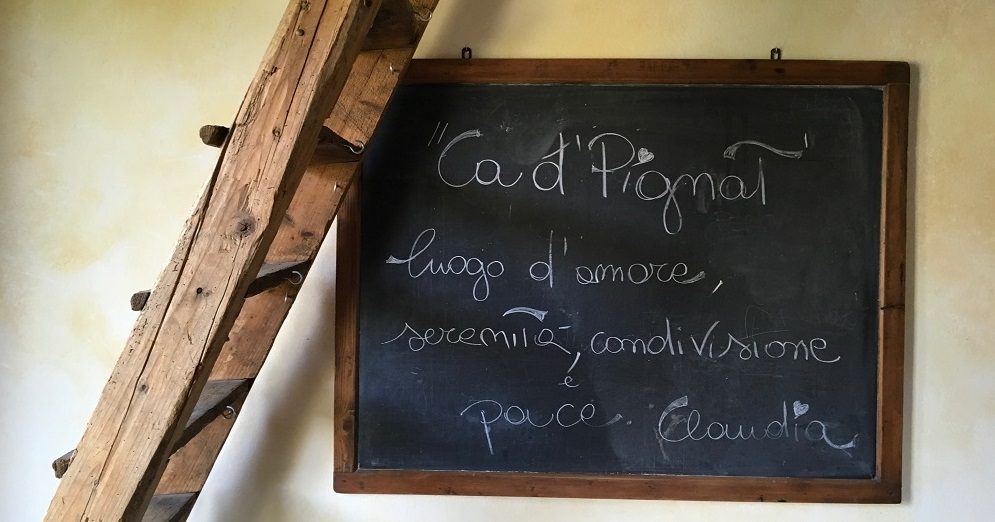 "Ca d'Pignat"
luogo d'amore,
serenità, condivisione
e
pace. Claudia